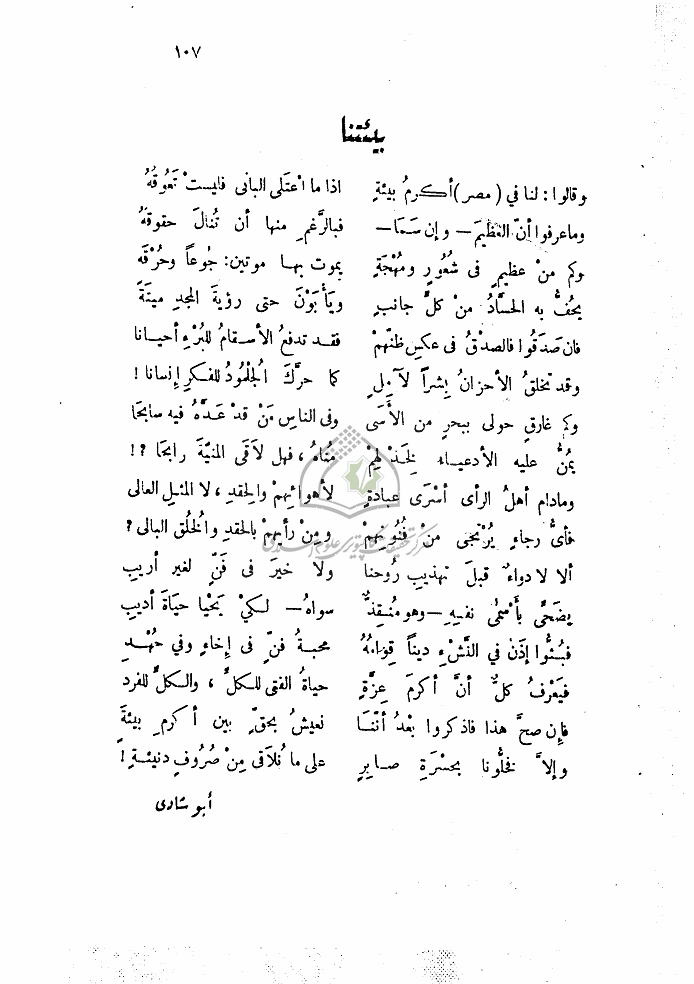 ١٠٧
بيئتنا
وقالوا : لنا في ( مصر ) أكرمُ بيئةٍ اذا ما اعتلى البانى فليستْ تَعُوقُهُ
وما عرفوا أنّ العظيمَ — وإن سَمَا — فبالرَّغمِ منها أن تُنالَ حقوقهُ
وكم منْ عظيمٍ فى شُعُورٍ ومُهْجَةٍ يموت بها موتين : جُوعاً وحُرْقَه
يحفُّ به الحسَّادُ منْ كلِّ جانبٍ ويأبَوْنَ حتى رؤيةَ المجدِ ميتَةً
فان صَدَقُوا فالصدْقُ فى عكسِ ظنّهمْ فقد تدفعُ الأسقامُ للبُرْءِ أحيانا
وقد تخلقُ الأحزانُ بِشراً لآملٍ كما حرَّكَ الجُلْمُودُ للفكرِ إنسانا !
وكم غارقٍ حولى ببحرٍ من الأسَى وفى الناسِ مَنْ قدْ عَدَّهُ فيه سابحَا
يمُنُّ عليه الأدعياءُ بخَذْلهمْ مُناهُ ، فهل لاَقى المنيّةَ رابحَا ؟ !
ومادام أهلُ الرأى أسْرَى عبادةٍ لأهوائِهمْ والحقدِ ، لا المثلِ العالى
فأىُّ رجاءٍ يُرْتجى منْ فُنُونِهمْ ومِنْ رأيِهمْ بالحقدِ والخُلُق البالى ؟
ألا لا دواءٌ قبلَ تهذيبِ رُوحنا ولا خيرَ فى فَنٍّ لغير أريبِ
يضَحِّى بأسْمَى نفسِهِ — وهو مُنقِذٌ سواهُ — لكىْ يَحْيا حياةَ أديبِ
فبُثُّوا إذَنْ في النَّشْءِ ديناً قِوامُهُ محبةُ فنٍّ في إخاءٍ وفي جُهْدِ
فيَعْرِفُ كلٌّ أنَّ أكرمَ عِزَّةٍ حياةُ الفتى للكلِّ ، والكلِّ للفرد
فإن صحَّ هذا فاذكروا بَعْدُ أنَّنا نعيشُ بحقٍّ بين أكرمِ بيئةٍ
وإلاَّ فخلُّونا بحسْرَةِ صابرٍ على ما نُلاَقى مِنْ صُرُوفٍ دنيئةٍ !
أبو شادى